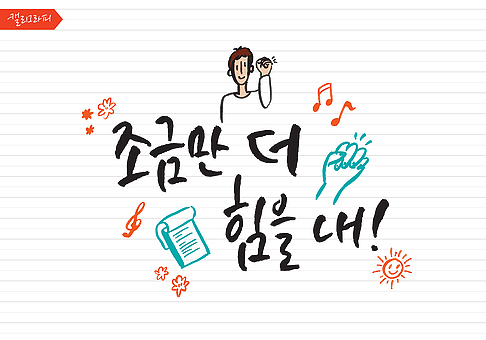 캘리그라피
조금만 더
힘을 내!